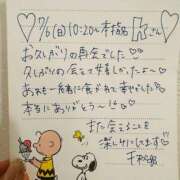 7/6(日)10:20〜本指名
Kさん
お久しぶりの再会でした♡
久しぶりの会えて本当しかったよ〜
あれも一緒に食べれて幸せでした
本当にありがとう〜!!
また会えることを
楽しみにしてます